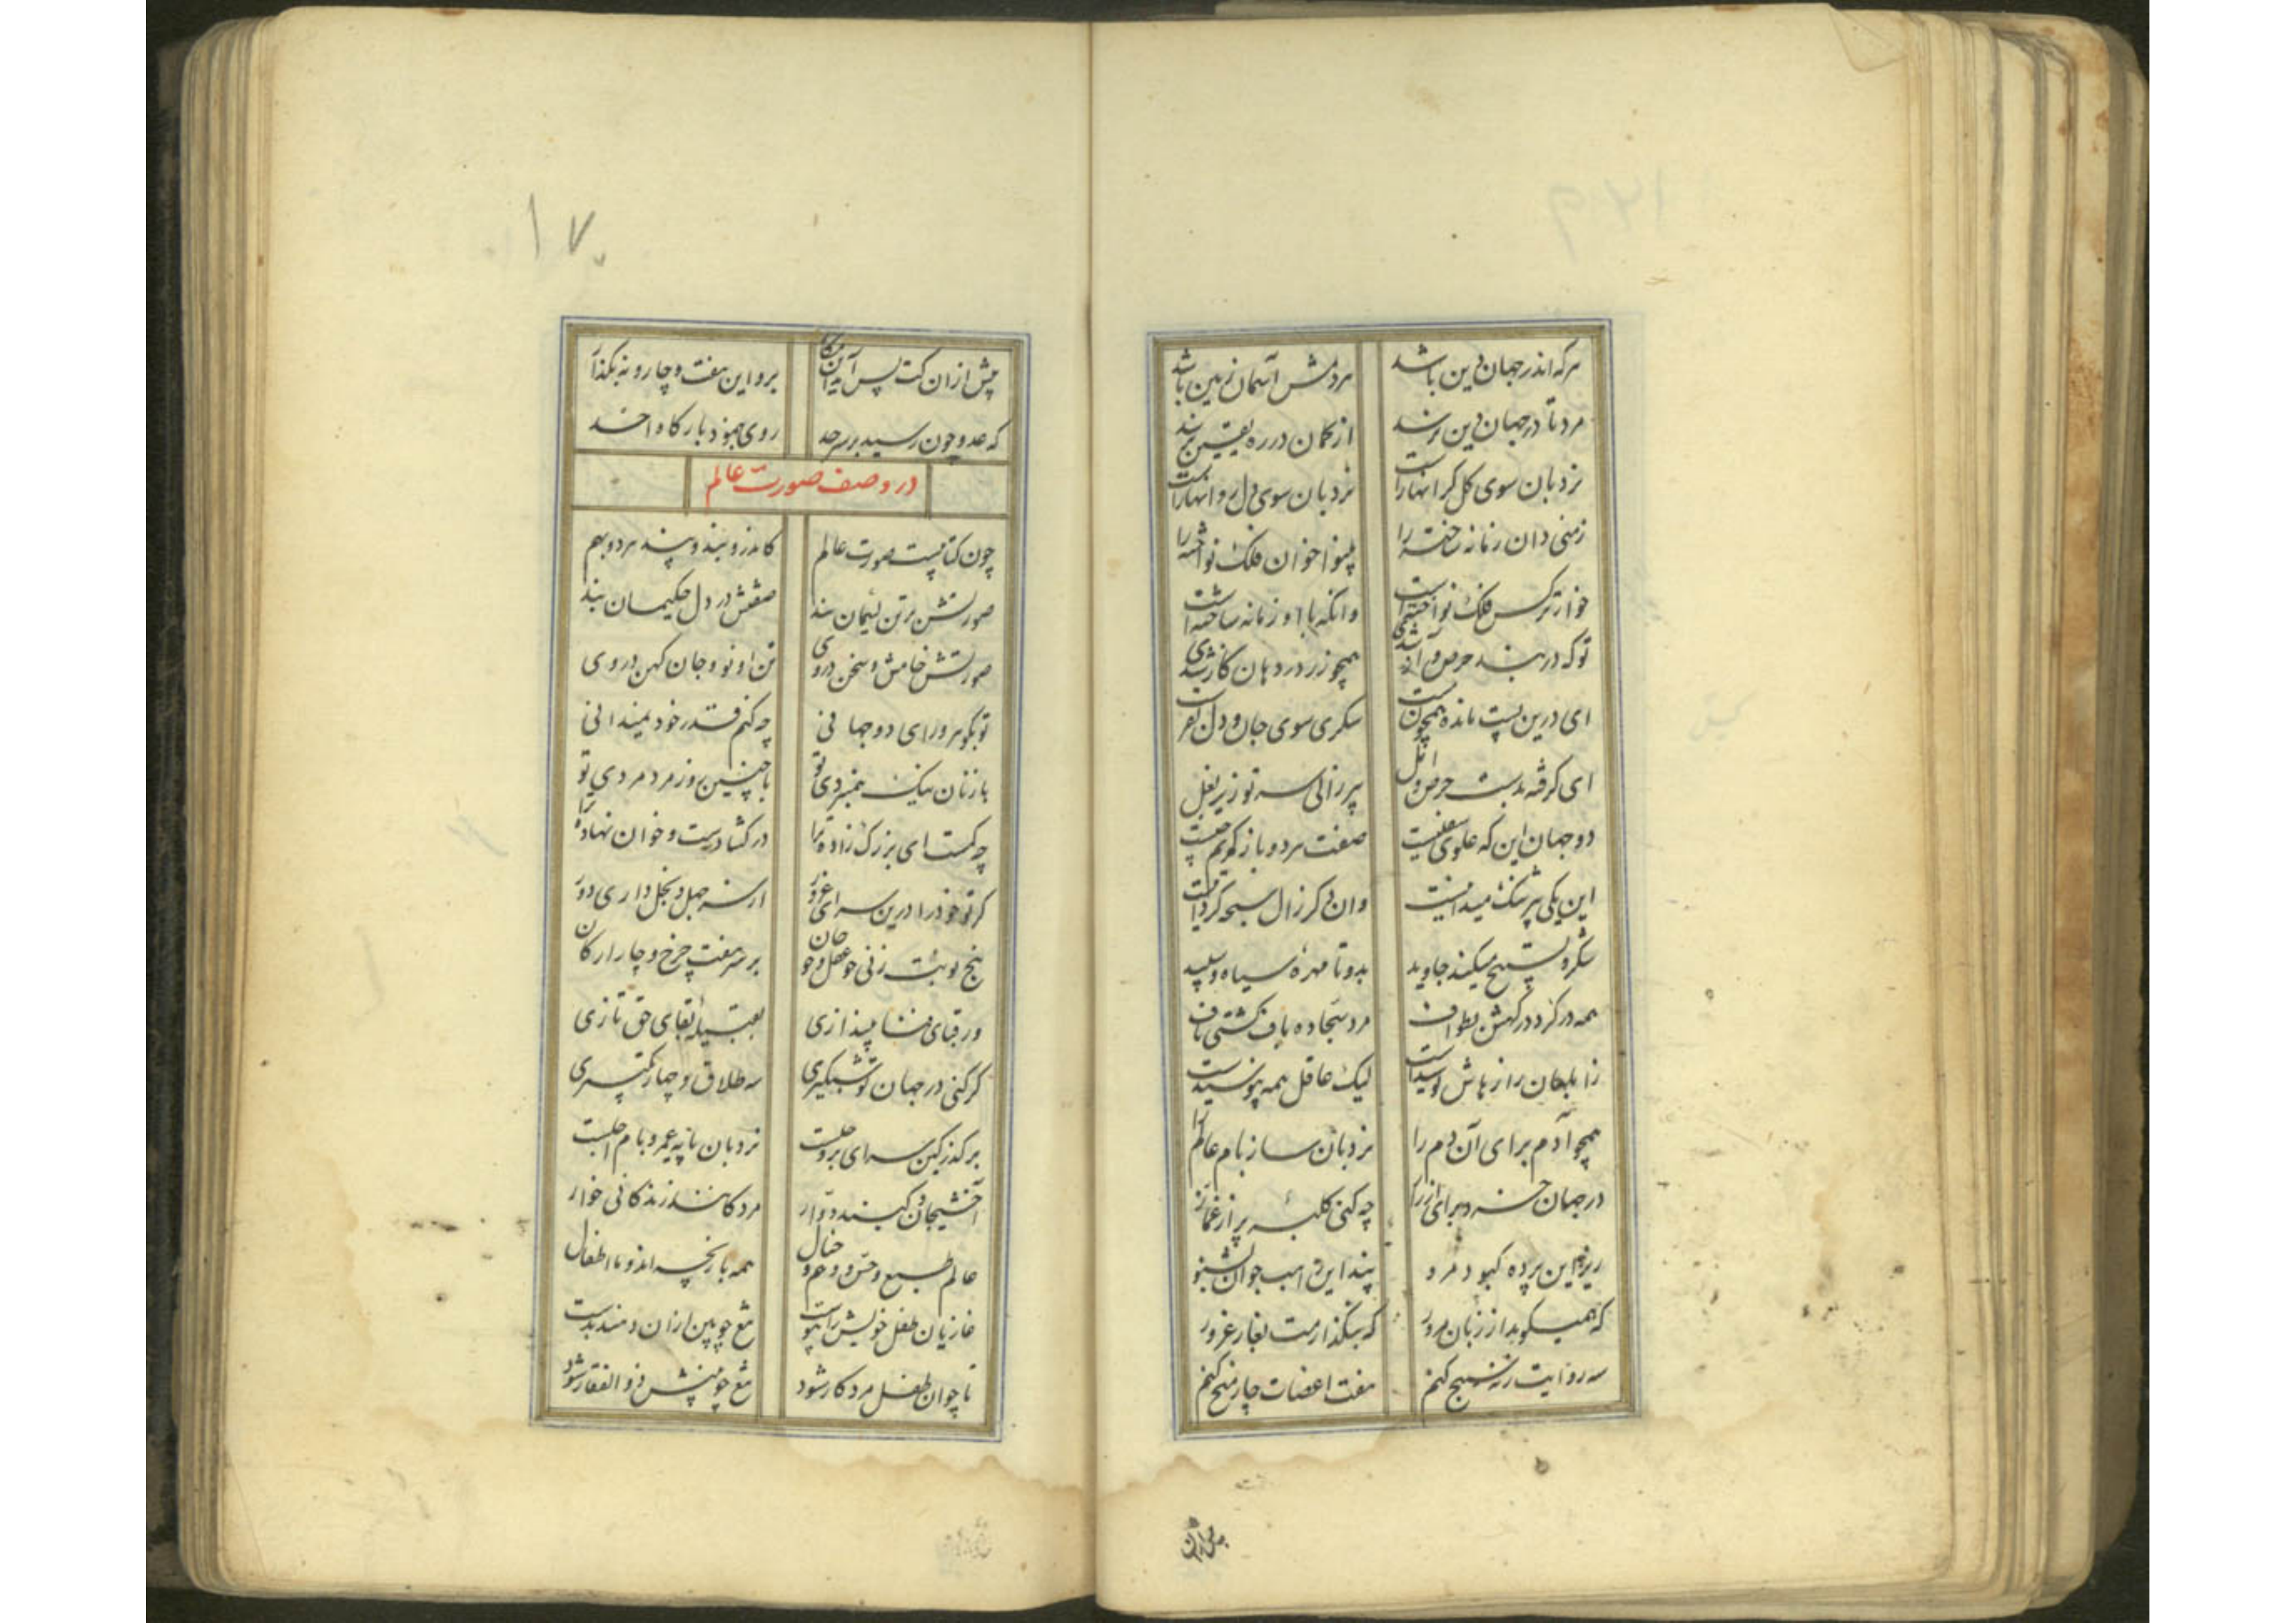 هرکه اندر جهان دین باشد
مردمش آسمان زمین باشد
مرد تا در جهان دین نرسد
از گمان در ره یقین نرسد
نردبان سوی کل کرانهاراست
نردبان سوی دل روانهاراست
زمنی دان زمانه ساخته را
بینوا خوان فلک نواخته را
خوارتر کس فلک نواخته است
وانکه با او زمانه ساخته است
تو که در بند حرص و آز شدی
همچو زر در دهان کاز شدی
ای درین پست مانده همچون
سکری سوی جان و دل
ای کرفته بدست حرص و امل
پیر زالی سه تو زیر بغل
دو جهان این که علوی سفلیست
صفت هر دو باز کویم چیست
این یکی پر سنک میدانیست
وان دکر زال سبحه کردانیست
شکر و تسبیح میکند جاوید
بدو تا مهرهٔ سیاه و سپید
همه در کرد درکهش بطواف
مرد سجاده باف کشتی باف
زابلهان راز هاش
لیک عاقل همه
همچو آدم برای آن دم را
نردبان ساز بام عالم را
در جهان خسرو برای از راز
چه کنی کلبهٔ پر از غماز
زیر این پردهٔ کبود مرو
پند این اسب جوان بشنو
که همیکوید از زبان مرور
که بنگذارمت بغار غرور
سه روانت زنه شبح کنم
هفت اعضات چار میخ کنم
۱۷۰
پیش از آن کت پس آید آن
برو این هفت و چار و نه بکذار
که عدو چون رسید بر سرحد
روی جمود بارکاه احد
در وصف صورت عالم
چون کتابیست صورت عالم
کاندرو بند و پند هر دو بهم
صورتش بر تن لئیمان بند
صفتش در دل حکیمان پند
صورتش خامش و سخن در وی
تن او نو و جان کهن در وی
تو بگوهر ورای دو جهانی
چه کنم قدر خود نمیدانی
با زنان نیک همبردی تو
با چنین روز مرد مردی تو
چه کمست ای بزرک زاده ترا
در کشادست و خوان نهاده ترا
کر تو خود را درین سرای غرور
از سه جهل و بخل داری دور
پنج نوبت زنی چو عقل و چو جان
بر سر هفت چرخ و چار ارکان
ور قبای فنا بیندازی
بقبیلهٔ بقای حق تازی
کر کنی در جهان تو شبکیری
سه طلاق و چهار تکبیری
بر کذر کین سرای پر و حلست
نردبان پایه عمر و بام اجلست
آخشیجان و کنبد دوار
مرد کانند زندکانی خوار
عالم طبع و حس و وهم و خیال
همه بازیچه اند و ما اطفال
غازیان طفل خویش را پیوست
تیغ چوبین ازان دهند بدست
تا چو آن طفل مرد کار شود
تیغ چوبینش ذو الفقار شود